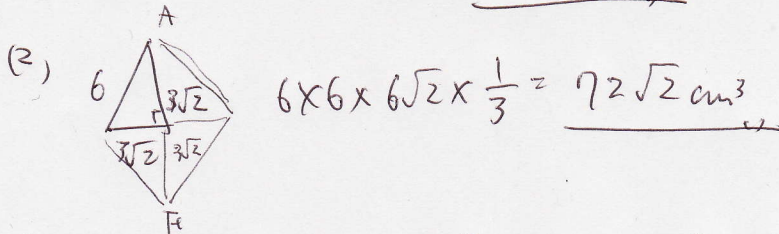 (2)
A
6
3√2
3√2 3√2
6×6×6√2×1/3 = 72√2 cm³